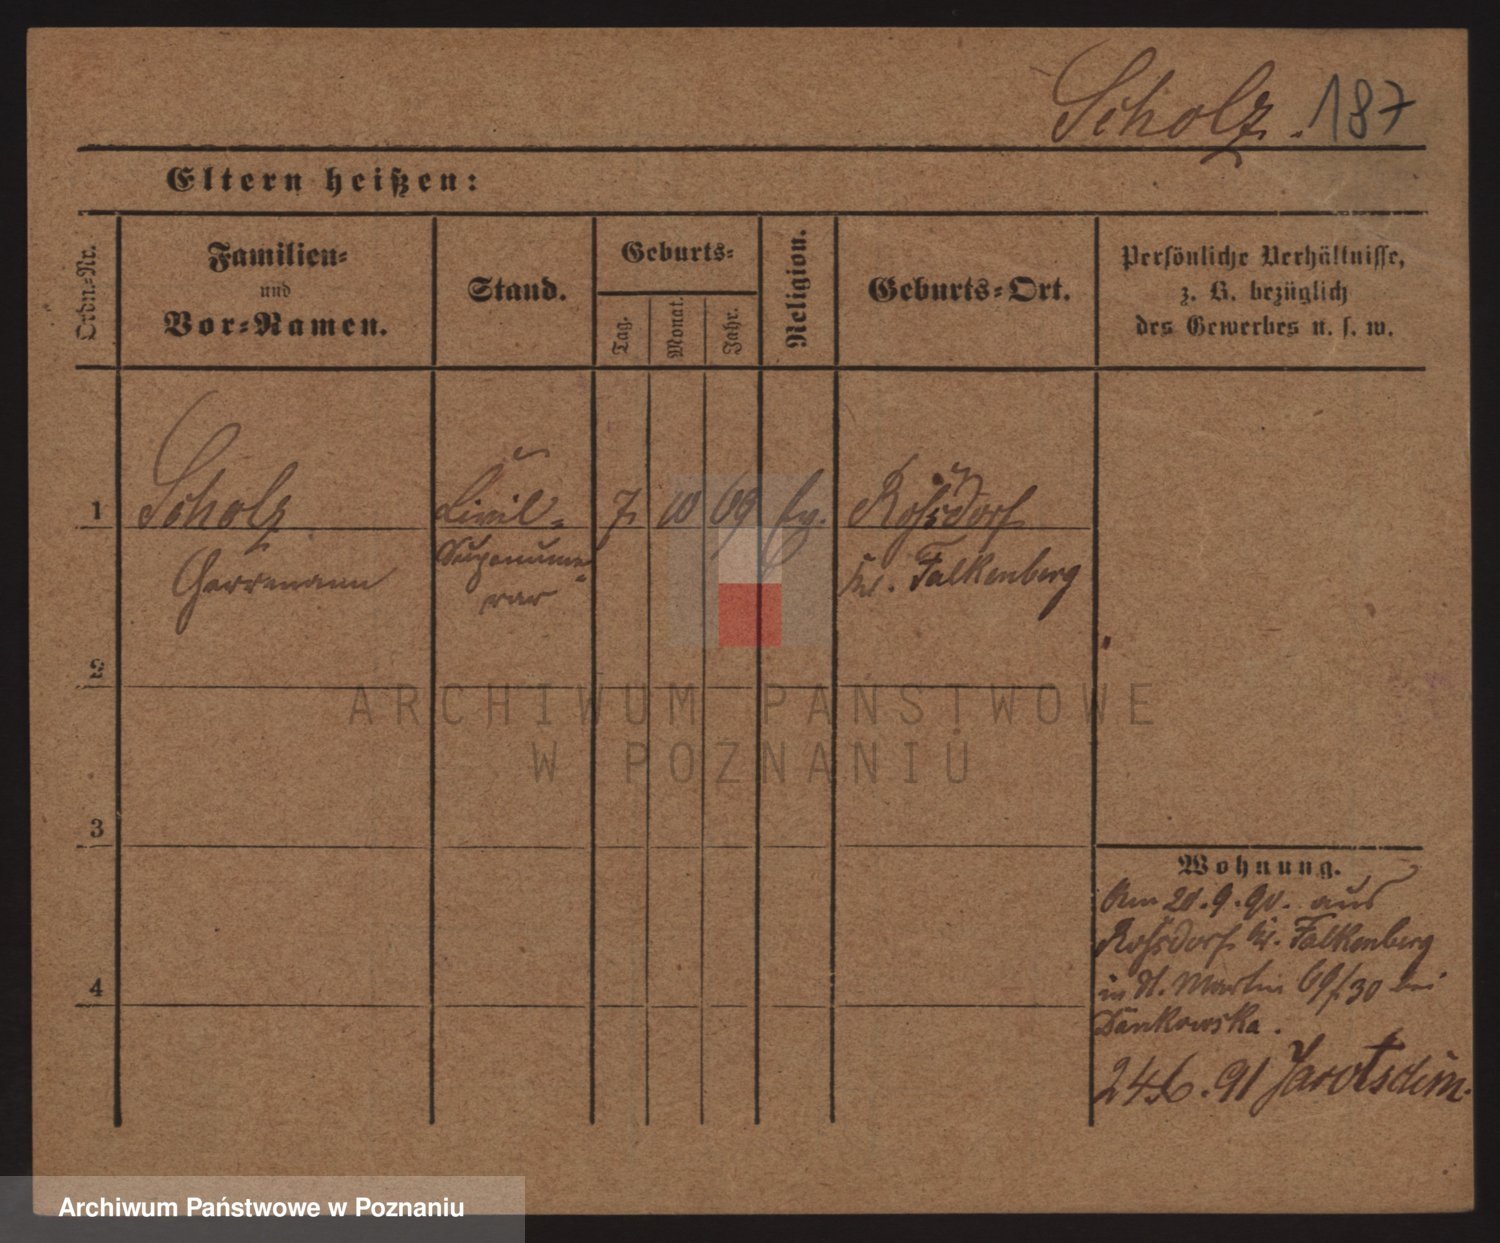 Scholz. 187
Eltern heißen:
Ordn.-Nr.
Familien-
und
Vor-Namen.
Stand.
Geburts-
Tag.
Monat.
Jahr.
Religion.
Geburts-Ort.
Persönliche Verhältnisse,
z. B. bezüglich
des Gewerbes u. s. w.
1 Scholz Civil- 7. 10 69 Roßdorf
Herrmann Supernume- Kr. Falkenberg
rar
2
3
4
Wohnung.
Am 20.9.90. aus
Roßdorf Kr. Falkenberg
in St. Martin 69/30 bei
Dankowska.
24.6.91 Jarotschin.
ARCHIWUM PAŃSTWOWE
W POZNANIU
Archiwum Państwowe w Poznaniu